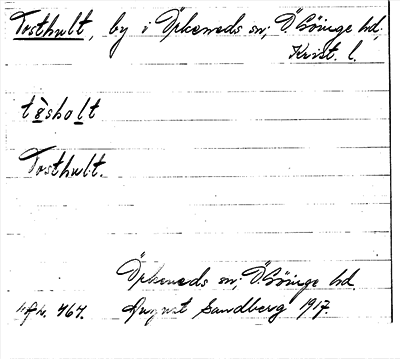 Tosthult, by i Örkeneds sn; Ö. Göinge hd;
Krist. l.
tòsholt
Tosthult.
Örkeneds sn; Ö. Göinge hd.
767. August Sandberg 1917.